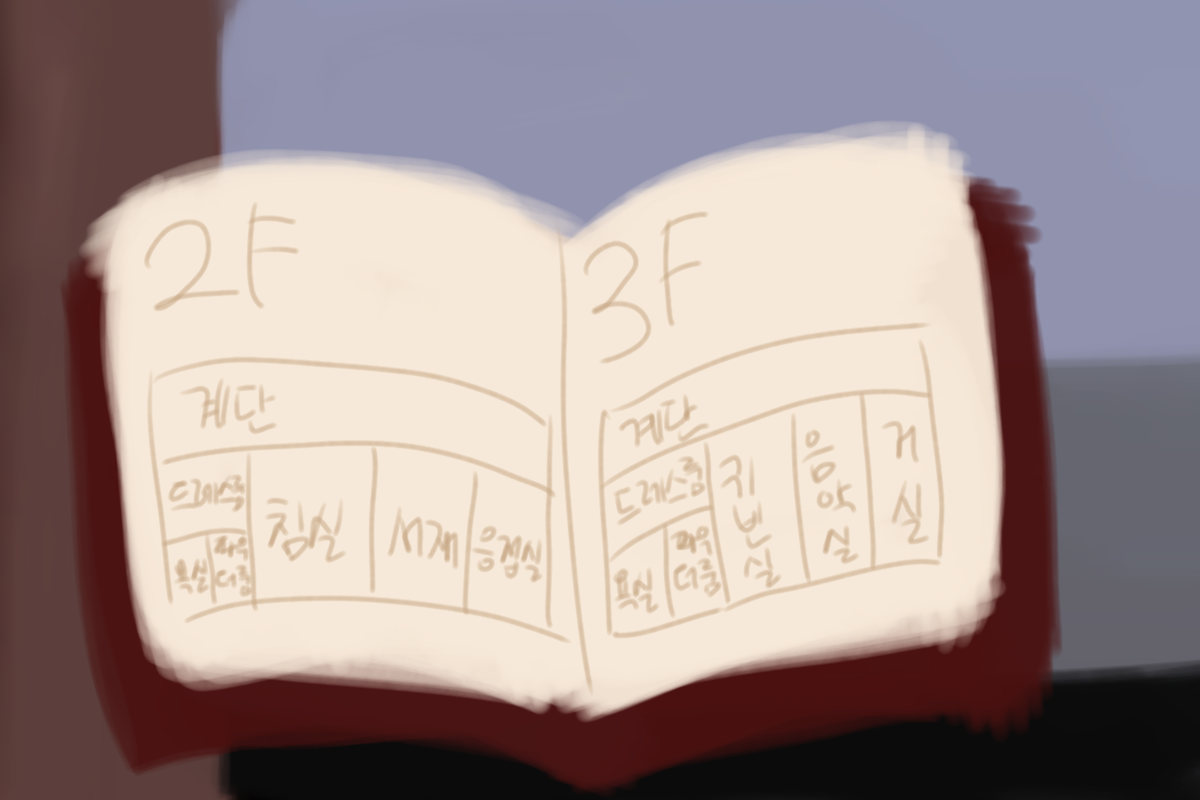 2F
계단
드레스룸
욕실
파우
더룸
침실
서재
응접실
3F
계단
드레스룸
욕실
파우
더룸
귀
빈
실
음
악
실
거
실